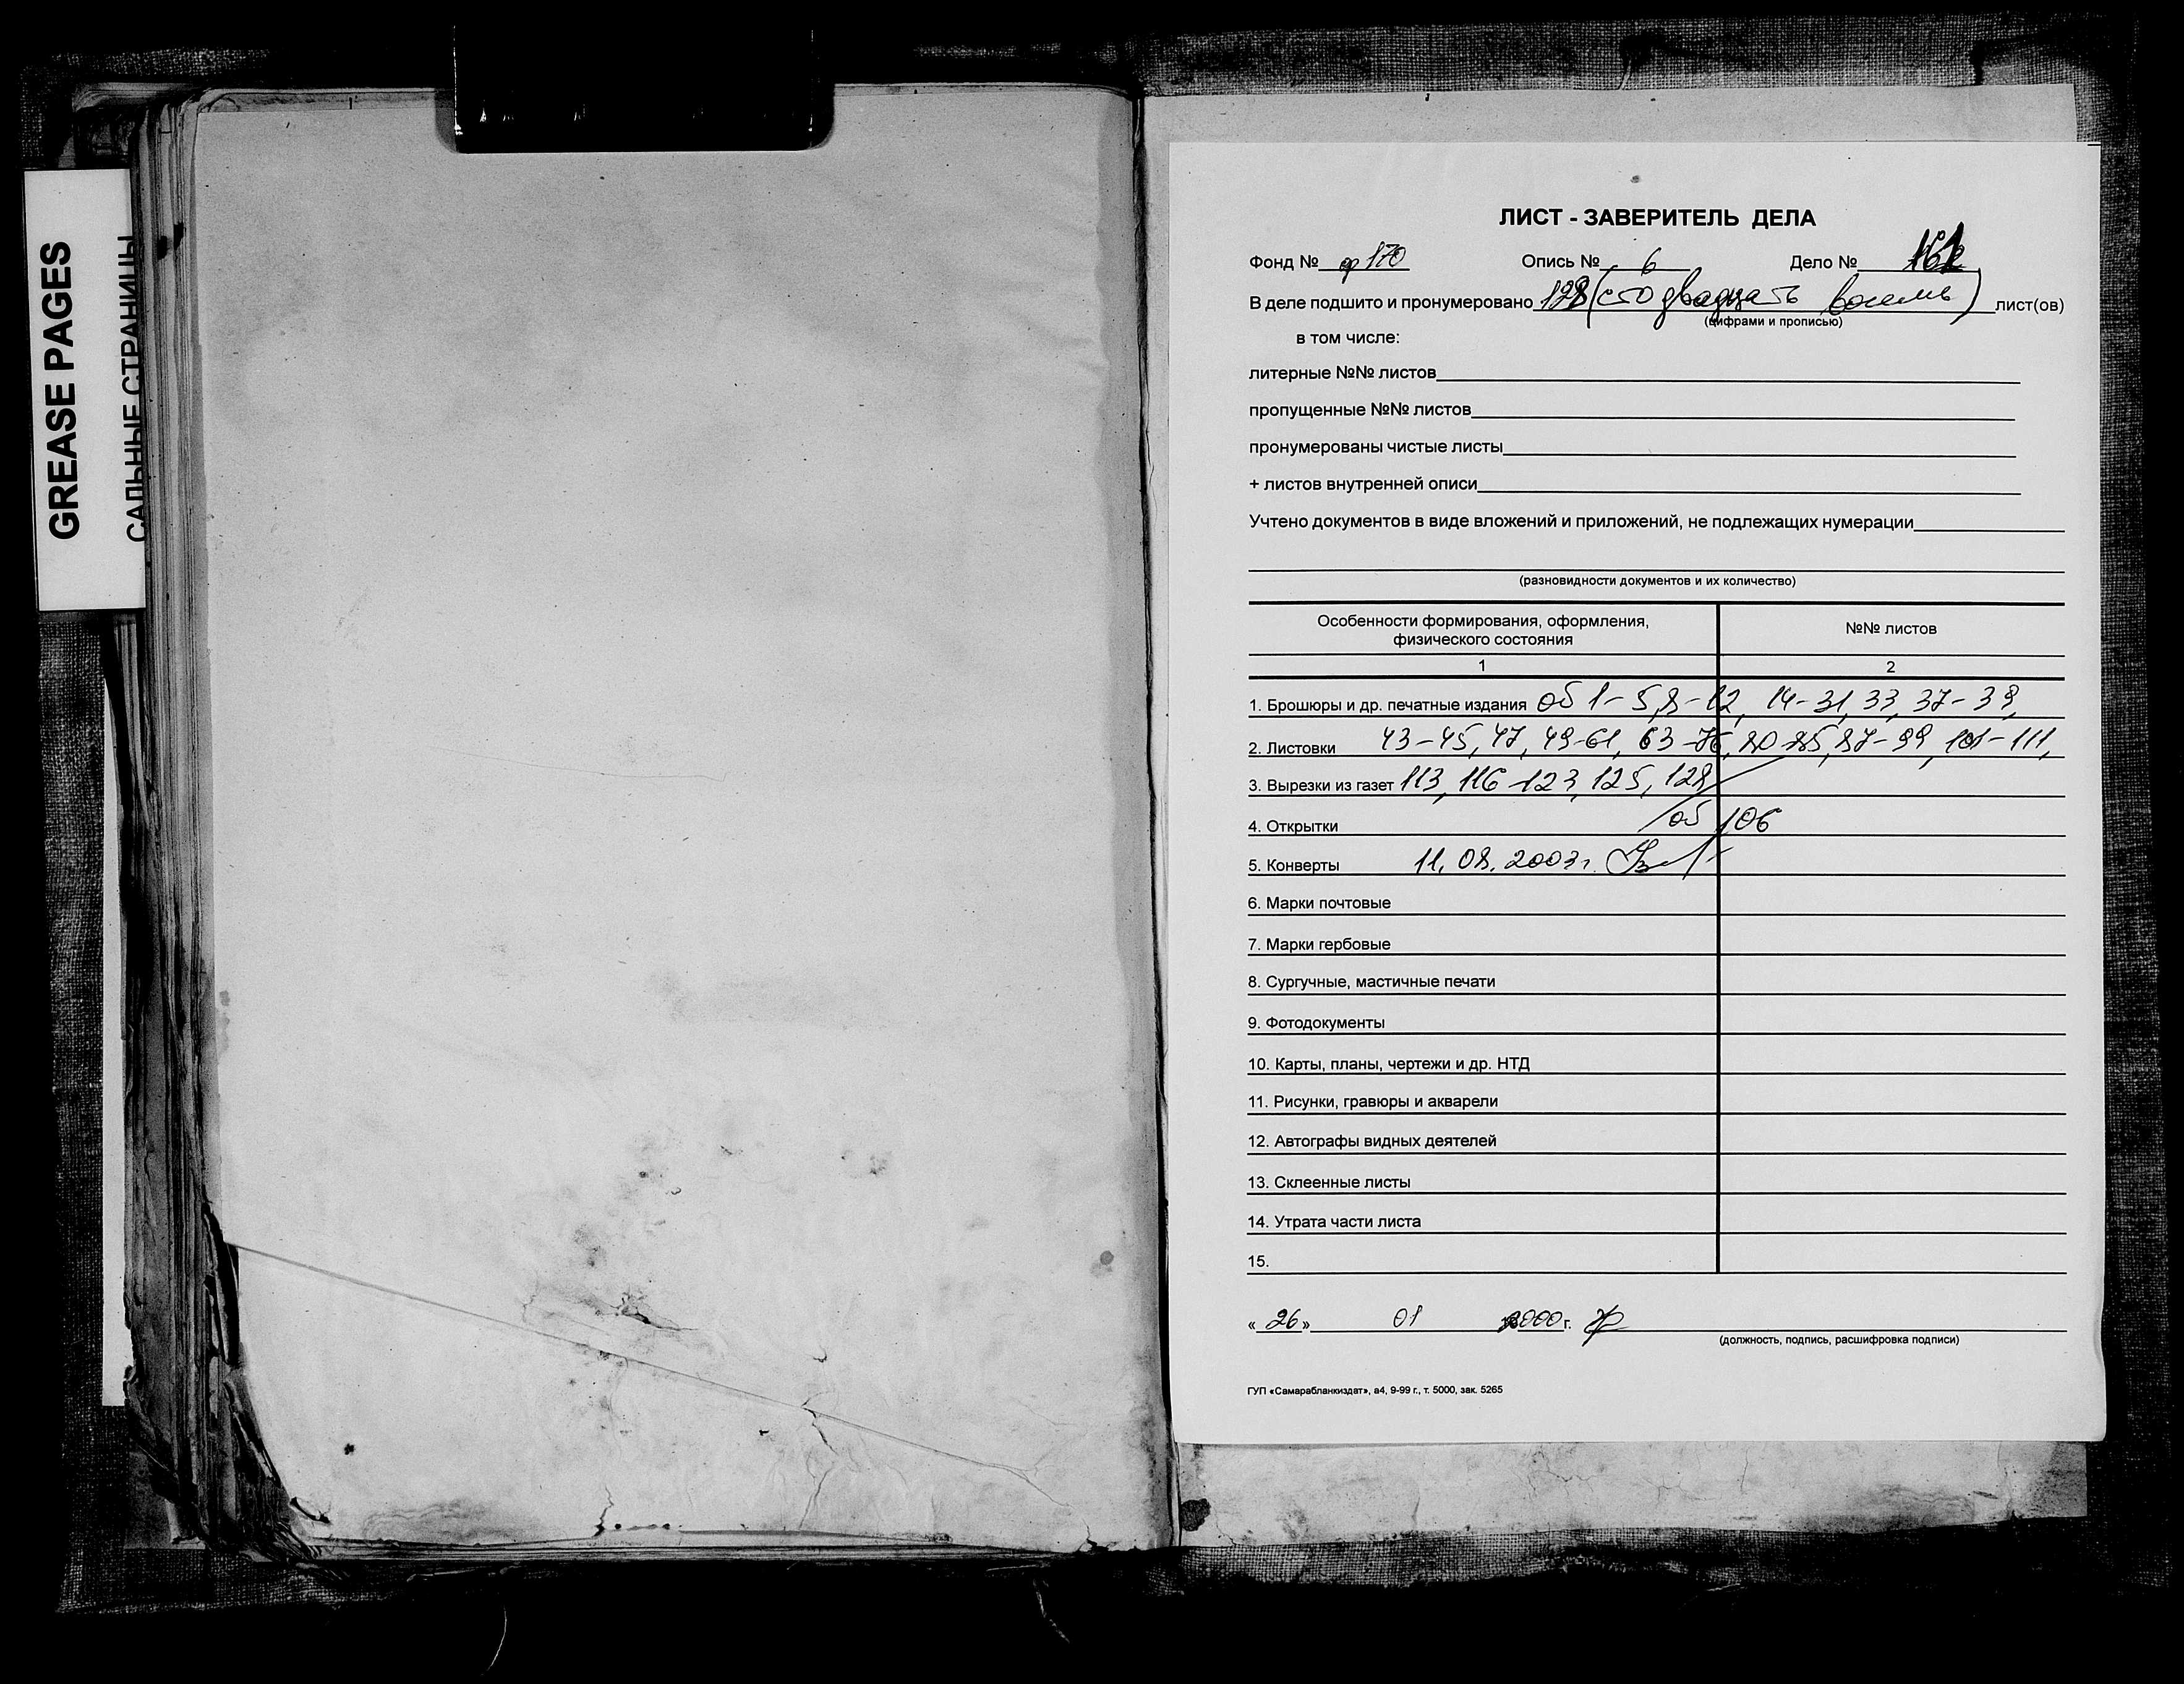 GREASE PAGES
САЛЬНЫЕ СТРАНИЦЫ
ЛИСТ - ЗАВЕРИТЕЛЬ ДЕЛА
Фонд № ф 170 Опись № 6 Дело №
В деле подшито и пронумеровано 128 (сто двадцать восемь) лист(ов)
(цифрами и прописью)
в том числе:
литерные №№ листов
пропущенные №№ листов
пронумерованы чистые листы
+ листов внутренней описи
Учтено документов в виде вложений и приложений, не подлежащих нумерации
(разновидности документов и их количество)
Особенности формирования, оформления, физического состояния №№ листов
1 2
1. Брошюры и др. печатные издания об 1-5, 8-12, 14-31, 33, 37-39,
2. Листовки 43-45, 47, 49-61, 63-76, 80-85, 87-99, 101-111,
3. Вырезки из газет 113, 116-123, 125, 128
4. Открытки об 106
5. Конверты 11.08.2003г.
6. Марки почтовые
7. Марки гербовые
8. Сургучные, мастичные печати
9. Фотодокументы
10. Карты, планы, чертежи и др. НТД
11. Рисунки, гравюры и акварели
12. Автографы видных деятелей
13. Склеенные листы
14. Утрата части листа
15.
« 26 » 01 2000 г.
(должность, подпись, расшифровка подписи)
ГУП «Самарабланкиздат», а4, 9-99 г., т. 5000, зак. 5265